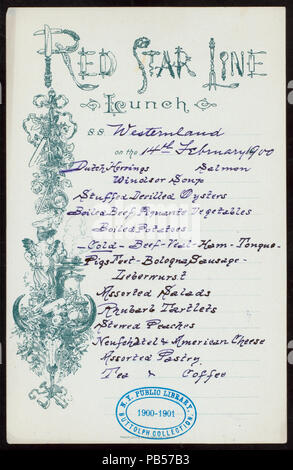 RED STAR LINE
Lunch
S.S Westernland
on the 14th February 1900
Dutch Herrings Salmon
Windsor Soup
Stuffed Deriled Oysters
Boiled Beef, Piquante Vegetables
Boiled Potatoes
-Cold- Beef-Veal-Ham-Tongue-
Pigs Feet-Bologna Sausage-
Leberwurst
Assorted Salads
Rhubarb Tartlets
Stewed Peaches
Neufchâtel & American Cheese
Assorted Pastry
Tea & Coffee
N.Y. PUBLIC LIBRARY,
1900-1901
BUTTOLPH COLLECTION.
alamy
PB57B3